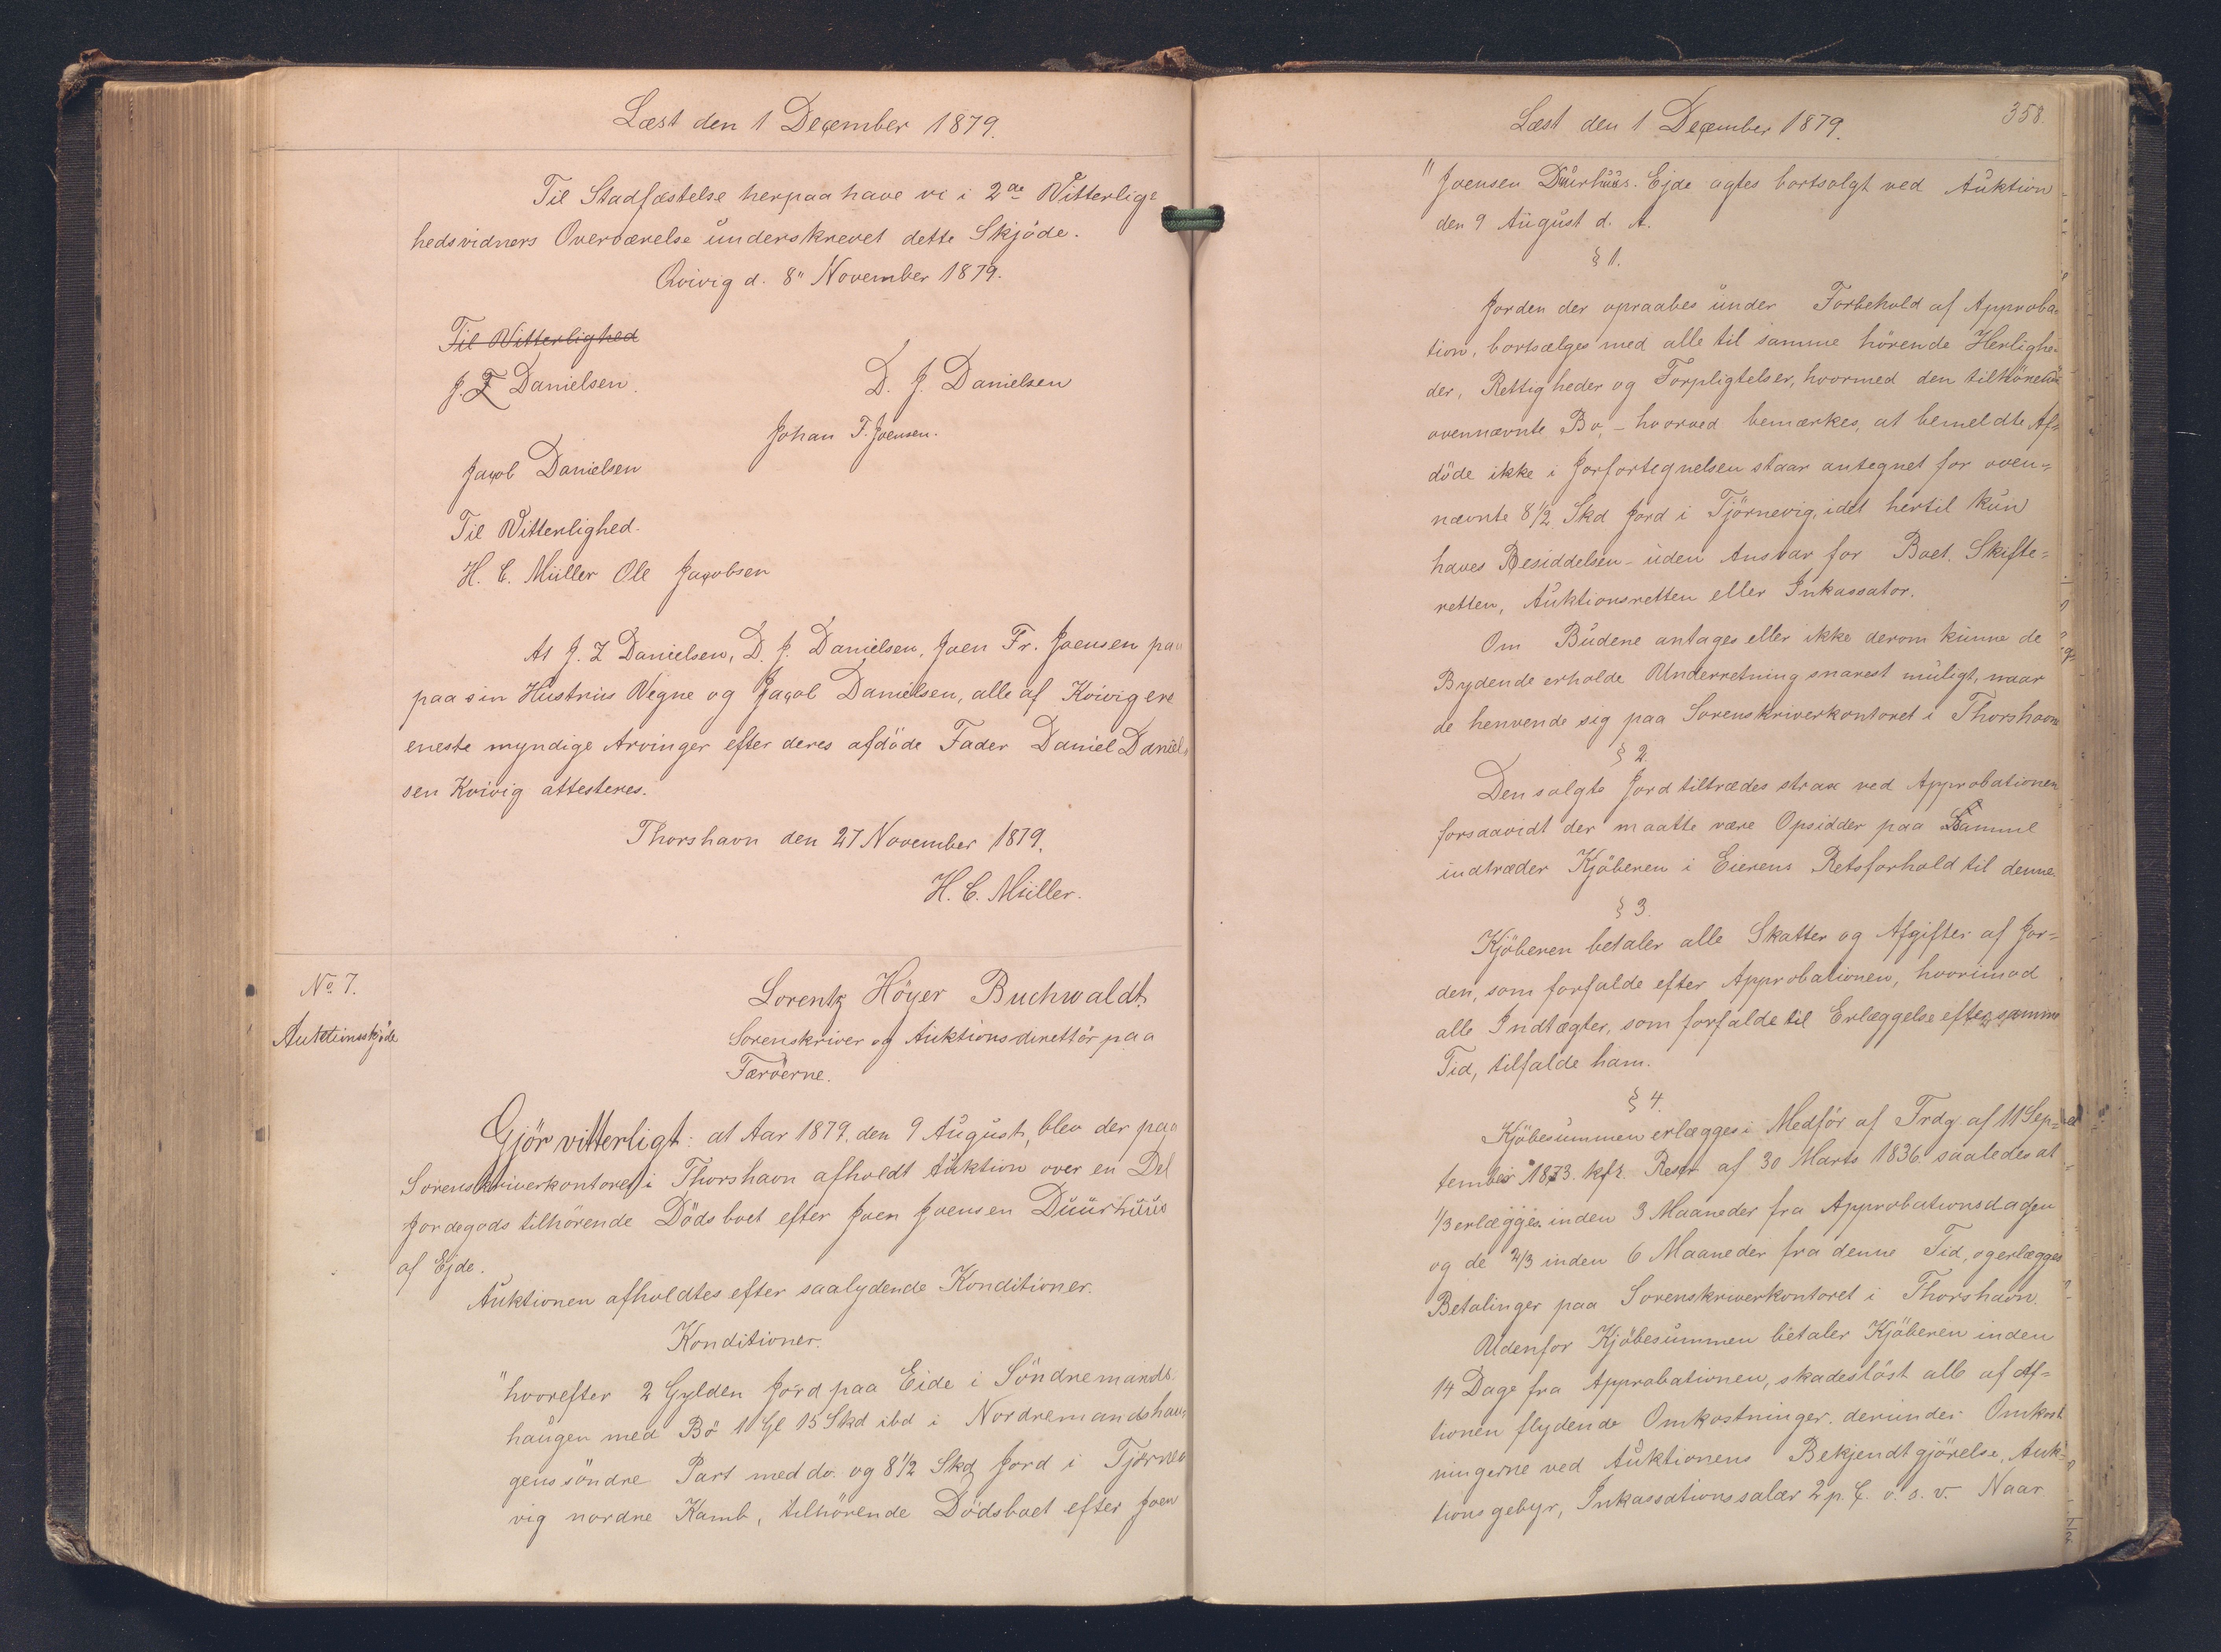 Læst den 1 December 1879.
Til Stadfæstelse herpaa have vi i 2de Vitterlig
hedsvidners Overværelse underskrevet dette Skjöde.
Qvivig d. 8" November 1879.
Til Vitterlighed
J. F Danielsen.
D. J. Danielsen
Johan F. Joensen.
Jacob Danielsen
Til Vitterlighed.
H. C. Müller Ole Jacobsen
At J. Z Danielsen, D. J. Danielsen, Joen Fr. Joensen paa
paa sin Hustrus Vegne og Jacob Danielsen, alle af Kvivig ere
eneste myndige Arvinger efter deres afdöde Fader Daniel Daniel
sen Kvivig attesteres.
Thorshavn den 27 November 1879.
H. C. Müller.
No 7.
Auktionsskjöde
Lorentz Höyer Buchwaldt
Sorenskriver og Auktionsdirektör paa
Færöerne.
Gjör vitterligt: at Aar 1879. den 9 August, blev der paa
Sorenskriverkontoret i Thorshavn afholdt Auktion over en Del
Jordegods tilhörende Dödsboet efter Joen Joensen Duurhuus
af Ejde.
Auktionen afholdtes efter saalydende Konditioner.
Konditioner.
"hvorefter 2 Gylden Jord paa Eide i Söndremands
haugen med Bö 1 Gl 15 Skd ibd i Nordremandshau=
gens söndre Part med do. og 8 1/2 Skd Jord i Tjörne
vig nordre Kamb, tilhörende Dödsboet efter Joen
Læst den 1 December 1879.
358.
" Joensen Duurhuus. Ejde agtes bortsolgt ved Auktion
den 9 August d. A.
§ 1.
Jorden der opraabes under Forbehold af Approba=
tion, bortsælges med alle til samme hörende Herlighe=
der, Rettigheder og Forpligtelser, hvormed den tilhörende
ovennævnte Bo, - hvorved bemærkes, at bemeldte Af=
döde ikke i Jorfortegnelsen staar antegnet for oven=
nævnte 8 1/2 Skd Jord i Tjörnevig, idet hertil kun
haves Besiddelsen - uden Ansvar for Boet, Skifte=
retten, Auktionsretten eller Inkassator.
Om Budene antages eller ikke derom kunne de
Bydende erholde Underretning snarest muligt, naar
de henvende sig paa Sorenskriverkontoret i Thorshavn
§ 2.
Den solgte Jord tiltrædes strax ved Approbationen
forsaavidt der maatte være Opsidder paa Samme
indtræder Kjöberen i Eierens Retsforhold til denne.
§ 3.
Kjöberen betaler alle Skatter og Afgifter af Jor=
den, som forfalde efter Approbationen, hvorimod
alle Indtægter, som forfalde til Erlæggelse efter samme
Tid, tilfalde ham.
§ 4.
Kjöbesummen erlægges i Medför af Frdg. af 11 Sep=
tember 1833. kfr. Reskr af 30 Marts 1836 saaledes at
1/3 erlægges inden 3 Maaneder fra Approbationsdagen
og de 2/3 inden 6 Maaneder fra denne Tid, og erlægges
Betalinger paa Sorenskriverkontoret i Thorshavn.
Udenfor Kjöbesummen betaler Kjöberen inden
14 Dage fra Approbationen, skadeslöst alle af Af=
tionen flydende Omkostninger, derunder Omkost
ningerne ved Auktionens Bekjendtgjörelse, Auk=
tionsgebyr, Inkassationssalær 2 p. C. o. s. v. Naar